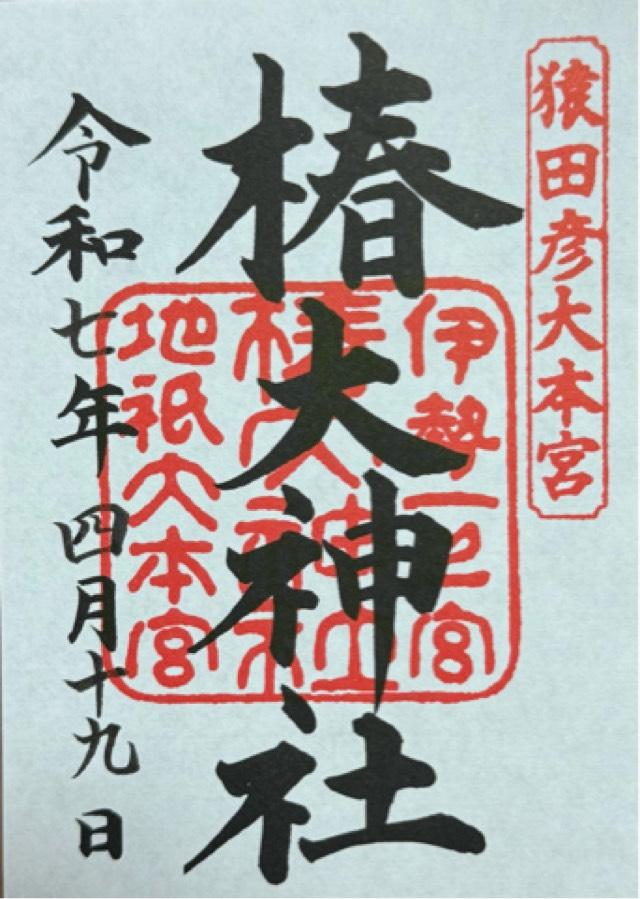 猿田彦大本宮
伊勢一之宮
椿大神社
地祇大本宮
椿大神社
令和七年四月十九日